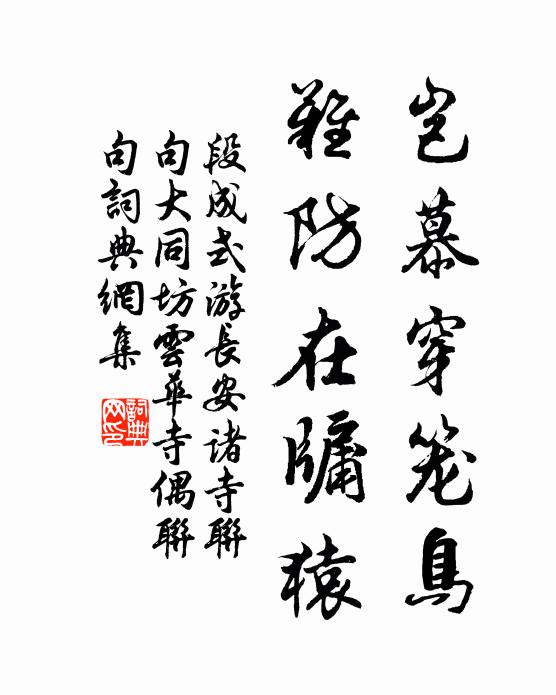 岂慕穿笼鳥
難防在牖猿
段成式游長安诸寺聯
句大同坊雲華寺偶聯
句詞典網集
詞典
网印